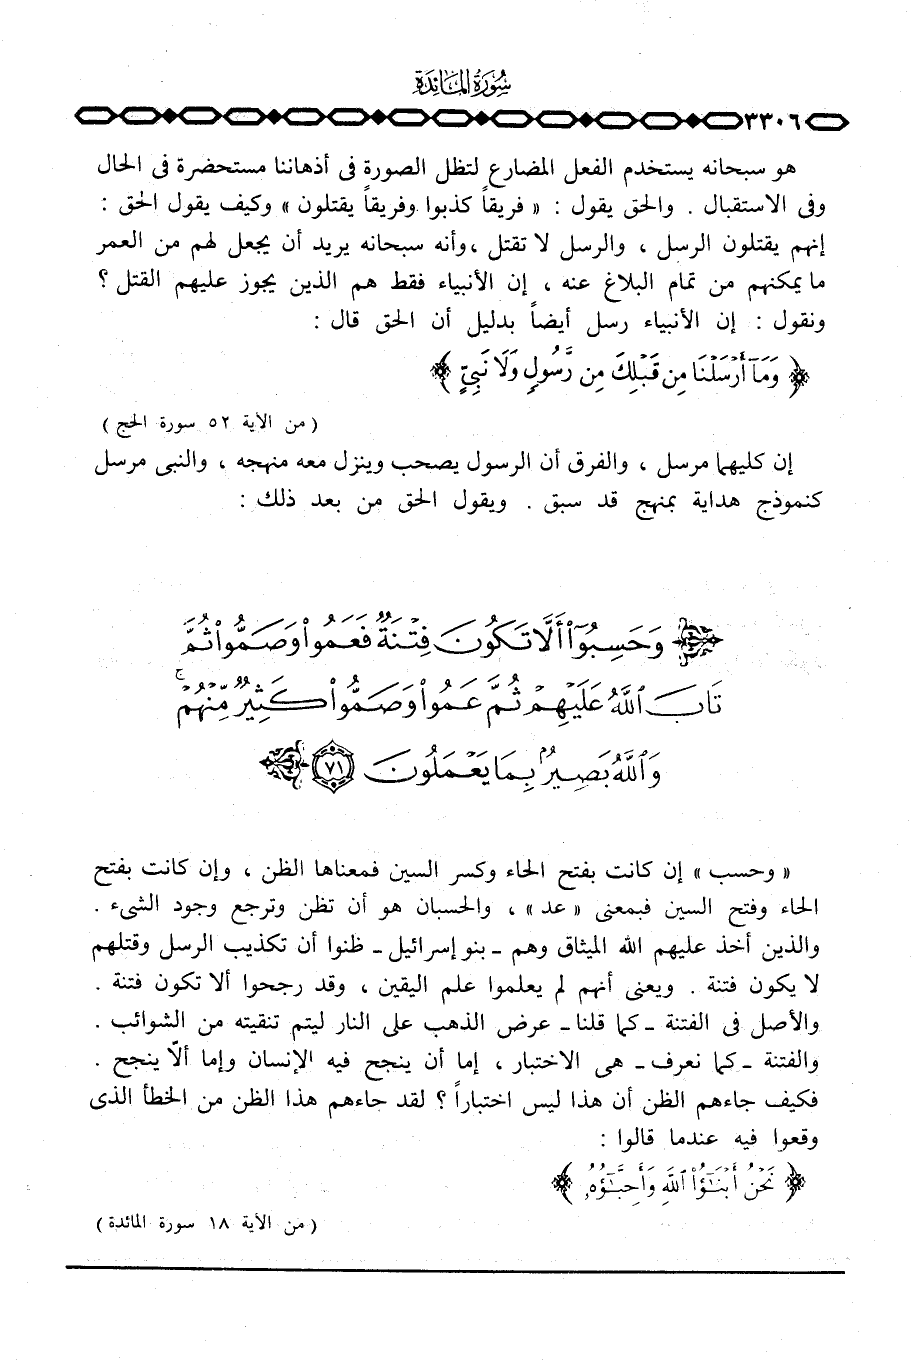 سُورَةُ المَائِدَة
٣٣٠٦
هو سبحانه يستخدم الفعل المضارع لتظل الصورة فى أذهاننا مستحضرة فى الحال
وفى الاستقبال . والحق يقول : « فريقاً كذبوا وفريقاً يقتلون » وكيف يقول الحق :
إنهم يقتلون الرسل ، والرسل لا تقتل ،وأنه سبحانه يريد أن يجعل لهم من العمر
ما يمكنهم من تمام البلاغ عنه ، إن الأنبياء فقط هم الذين يجوز عليهم القتل ؟
ونقول : إن الأنبياء رسل أيضاً بدليل أن الحق قال :
﴿ وَمَآ أَرْسَلْنَا مِن قَبْلِكَ مِن رَّسُولٍ وَلَا نَبِيٍّ ﴾
( من الآية ٥٢ سورة الحج )
إن كليهما مرسل ، والفرق أن الرسول يصحب وينزل معه منهجه ، والنبى مرسل
كنموذج هداية بمنهج قد سبق . ويقول الحق من بعد ذلك :
﴿ وَحَسِبُوٓا۟ أَلَّا تَكُونَ فِتْنَةٌ فَعَمُوا۟ وَصَمُّوا۟ ثُمَّ
تَابَ ٱللَّهُ عَلَيْهِمْ ثُمَّ عَمُوا۟ وَصَمُّوا۟ كَثِيرٌ مِّنْهُمْ ۚ
وَٱللَّهُ بَصِيرٌۢ بِمَا يَعْمَلُونَ ٧١ ﴾
« وحسب » إن كانت بفتح الحاء وكسر السين فمعناها الظن ، وإن كانت بفتح
الحاء وفتح السين فبمعنى « عد » ، والحسبان هو أن تظن وترجع وجود الشىء .
والذين أخذ عليهم الله الميثاق وهم ـ بنو إسرائيل ـ ظنوا أن تكذيب الرسل وقتلهم
لا يكون فتنة . ويعنى أنهم لم يعلموا علم اليقين ، وقد رجحوا ألا تكون فتنة .
والأصل فى الفتنة ـ كما قلنا ـ عرض الذهب على النار ليتم تنقيته من الشوائب .
والفتنة ـ كما نعرف ـ هى الاختبار ، إما أن ينجح فيه الإنسان وإما ألاّ ينجح .
فكيف جاءهم الظن أن هذا ليس اختباراً ؟ لقد جاءهم هذا الظن من الخطأ الذى
وقعوا فيه عندما قالوا :
﴿ نَحْنُ أَبْنَٰٓؤُا۟ ٱللَّهِ وَأَحِبَّٰٓؤُهُۥ ﴾
( من الآية ١٨ سورة المائدة )